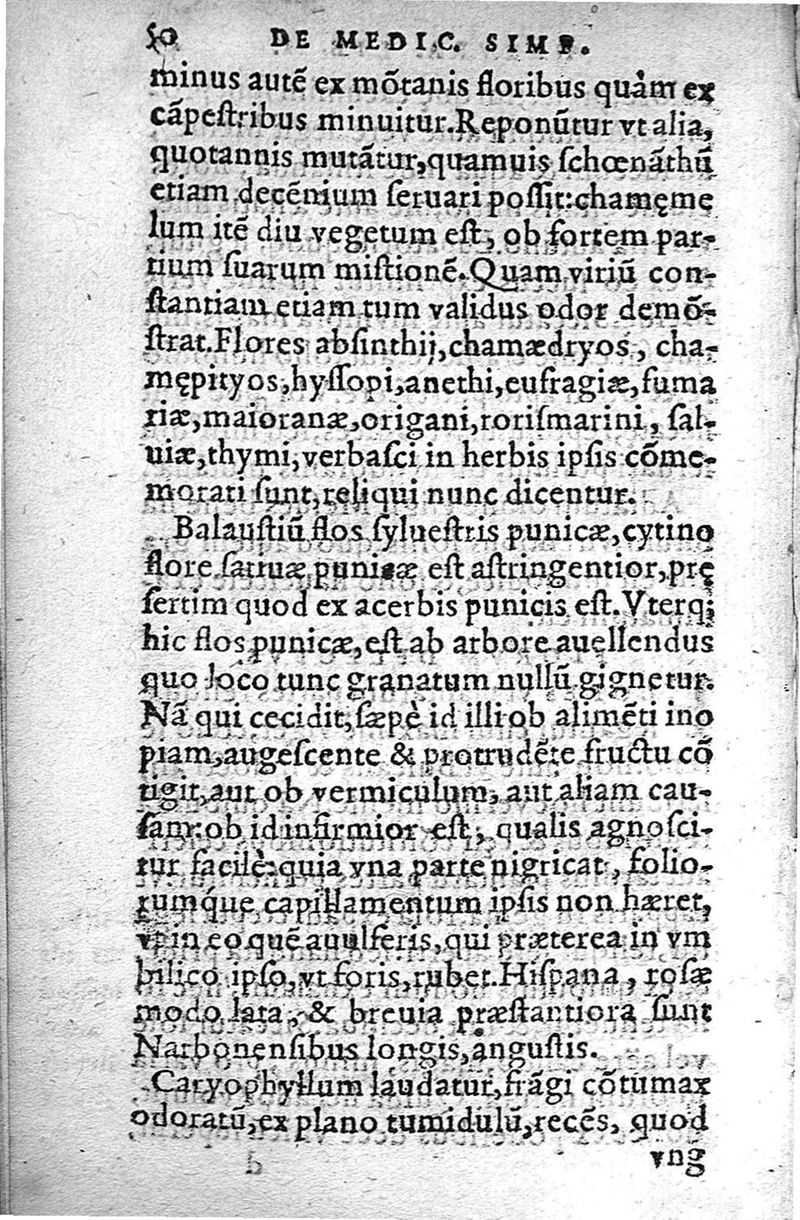 50 DE MEDIC. SIMP.
minus autē ex mōtanis floribus quàm ex
cāpeſtribus minuitur.Reponūtur vt alia,
quotannis mutātur,quamuis ſchœnāthū
etiam decēnium ſeruari poſſit:chamęme
lum itē diu vegetum eſt, ob fortem par-
tium ſuarum miſtionē.Quam viriū con-
ſtantiam etiam tum validus odor demō-
ſtrat.Flores abſinthij,chamædryos, cha-
mępityos,hyſſopi,anethi,eufragiæ,fuma
riæ,maioranæ,origani,roriſmarini, ſal-
uiæ,thymi,verbaſci in herbis ipſis cōme-
morati ſunt,reliqui nunc dicentur.
Balauſtiū flos ſylueſtris punicæ,cytino
flore ſatiuæ punicæ eſt aſtringentior,prę
ſertim quod ex acerbis punicis eſt.Vterq;
hic flos punicæ,eſt ab arbore auellendus
quo loco tunc granatum nullū gignetur.
Nā qui cecidit,ſæpè id illi ob alimēti ino
piam,augeſcente & protrudēte fructu cō
tigit,aut ob vermiculum, aut aliam cau-
ſam:ob id infirmior eſt, qualis agnoſci-
tur facilè:quia vna parte nigricat, folio-
rumq́ue capillamentum ipſis non hæret,
vt in eo quē auulſeris,qui præterea in vm
bilico ipſo,vt foris,rubet.Hiſpana, roſæ
modo lata, & breuia præſtantiora ſunt
Narbonenſibus longis,anguſtis.
Caryophyllum laudatur,frāgi cōtumax
odoratū,ex plano tumidulū,recēs, quod
vng